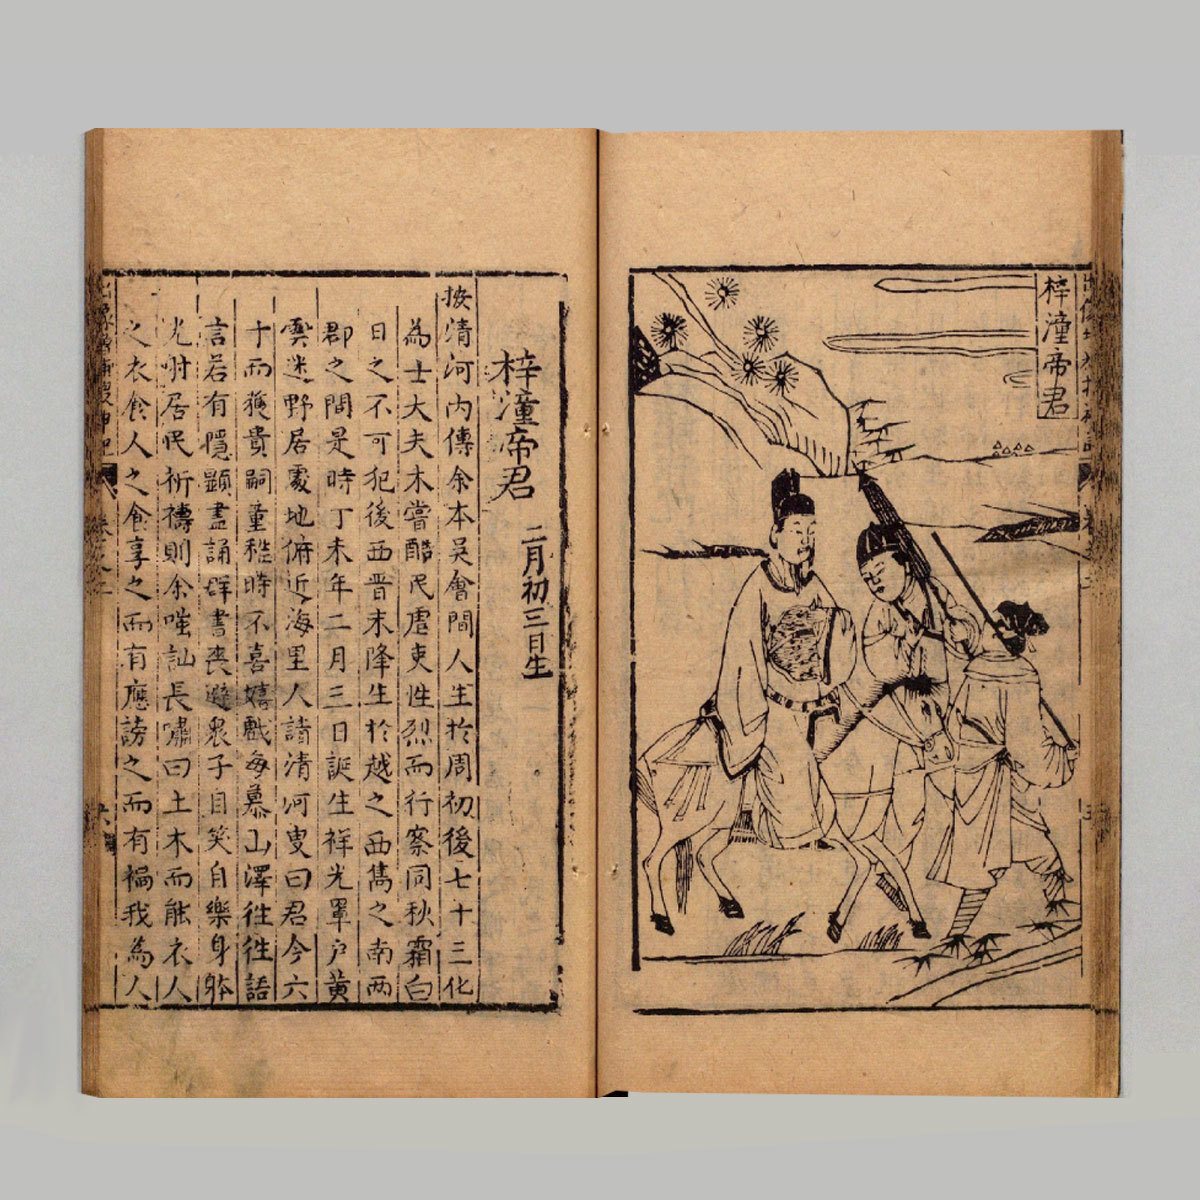 梓潼帝君
梓潼帝君
二月初三日生
按清河内傳余本吴會間人生於周初後七十三化
為士大夫未嘗酷民虐吏性烈而行察同秋霜白
日之不可犯後西晋末降生於越之西雋之南兩
郡之間是時丁未年二月三日誕生祥光罩户黄
雲迷野居處地俯近海里人請清河叟曰君今六
十而獲貴嗣童稚時不喜嬉戲每慕山澤徃徃語
言若有隱顯晝誦群書夜避衆子自笑自樂身躰
光射居民祈禱則余嗤訕長嘯曰土木而能衣人
之衣食人之食享之而有應謗之而有禍我為人